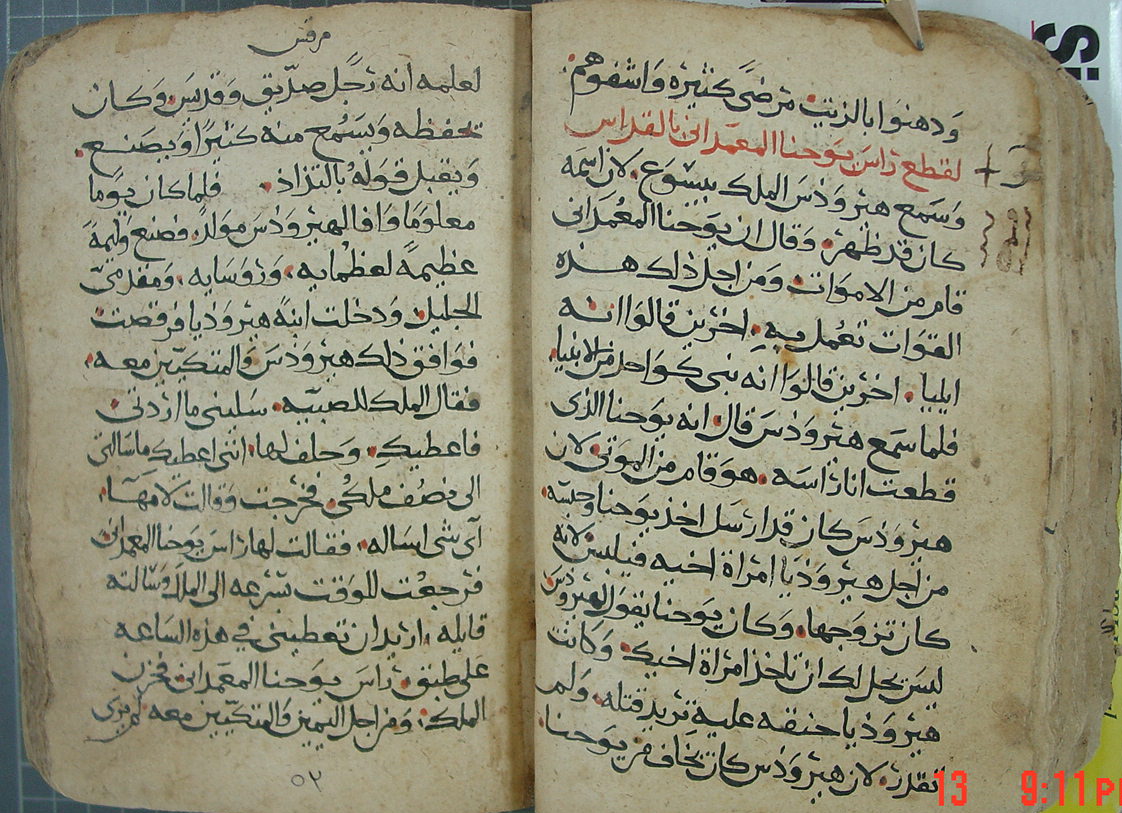 ودهنوا بالزيت مرضى كثيره واشفوهم
لقطع راس يوحنا المعمدانى بالقداس
وسمع هيرودس الملك بيسوع لان اسمه
كان قد ظهر وقال ان يوحنا المعمدانى
قام من الاموات ومن اجل ذلك هذه
القوات تعمل فيه اخرين قالوا انه
ايليا اخرين قالوا انه نبى كواحد من الانبيا
فلما سمع هيرودس قال انه يوحنا الذى
قطعت انا راسه هو قام من الموتى لان
هيرودس كان قد ارسل اخذ يوحنا وحبسه
من اجل هيروديا امراة اخيه فيلبس لانه
كان تزوجها وكان يوحنا يقول لهيرودس
ليس يحل لك ان تاخذ امراة اخيك وكانت
هيروديا حنقه عليه تريد قتله ولم
تقدر لان هيرودس كان يخاف من يوحنا
مرقس
لعلمه انه رجل صديق وقديس وكان
يحفظه ويسمع منه كثيرا ويصنع
ويقبل قوله بالتذاذ فلما كان يوما
معلوما وافا لهيرودس مولد فصنع وليمة
عظيمة لعظمايه وروسايه ومقدمى
الجليل ودخلت ابنة هيروديا فرقصت
فوافق ذلك هيرودس والمتكيين معه
فقال الملك للصبيه سلينى ما اردتى
فاعطيك وحلف لها اننى اعطيك ما سالتى
الى نصف ملكى فخرجت وقالت لامها
اى شى اساله فقالت لها راس يوحنا المعمدانى
فرجعت للوقت بسرعه الى الملك وسالته
قايله اريد ان تعطينى فى هذه الساعه
على طبق راس يوحنا المعمدانى فحزن
الملك ومن اجل اليمين والمتكيين معه لم
٥٢
13 9:11 P